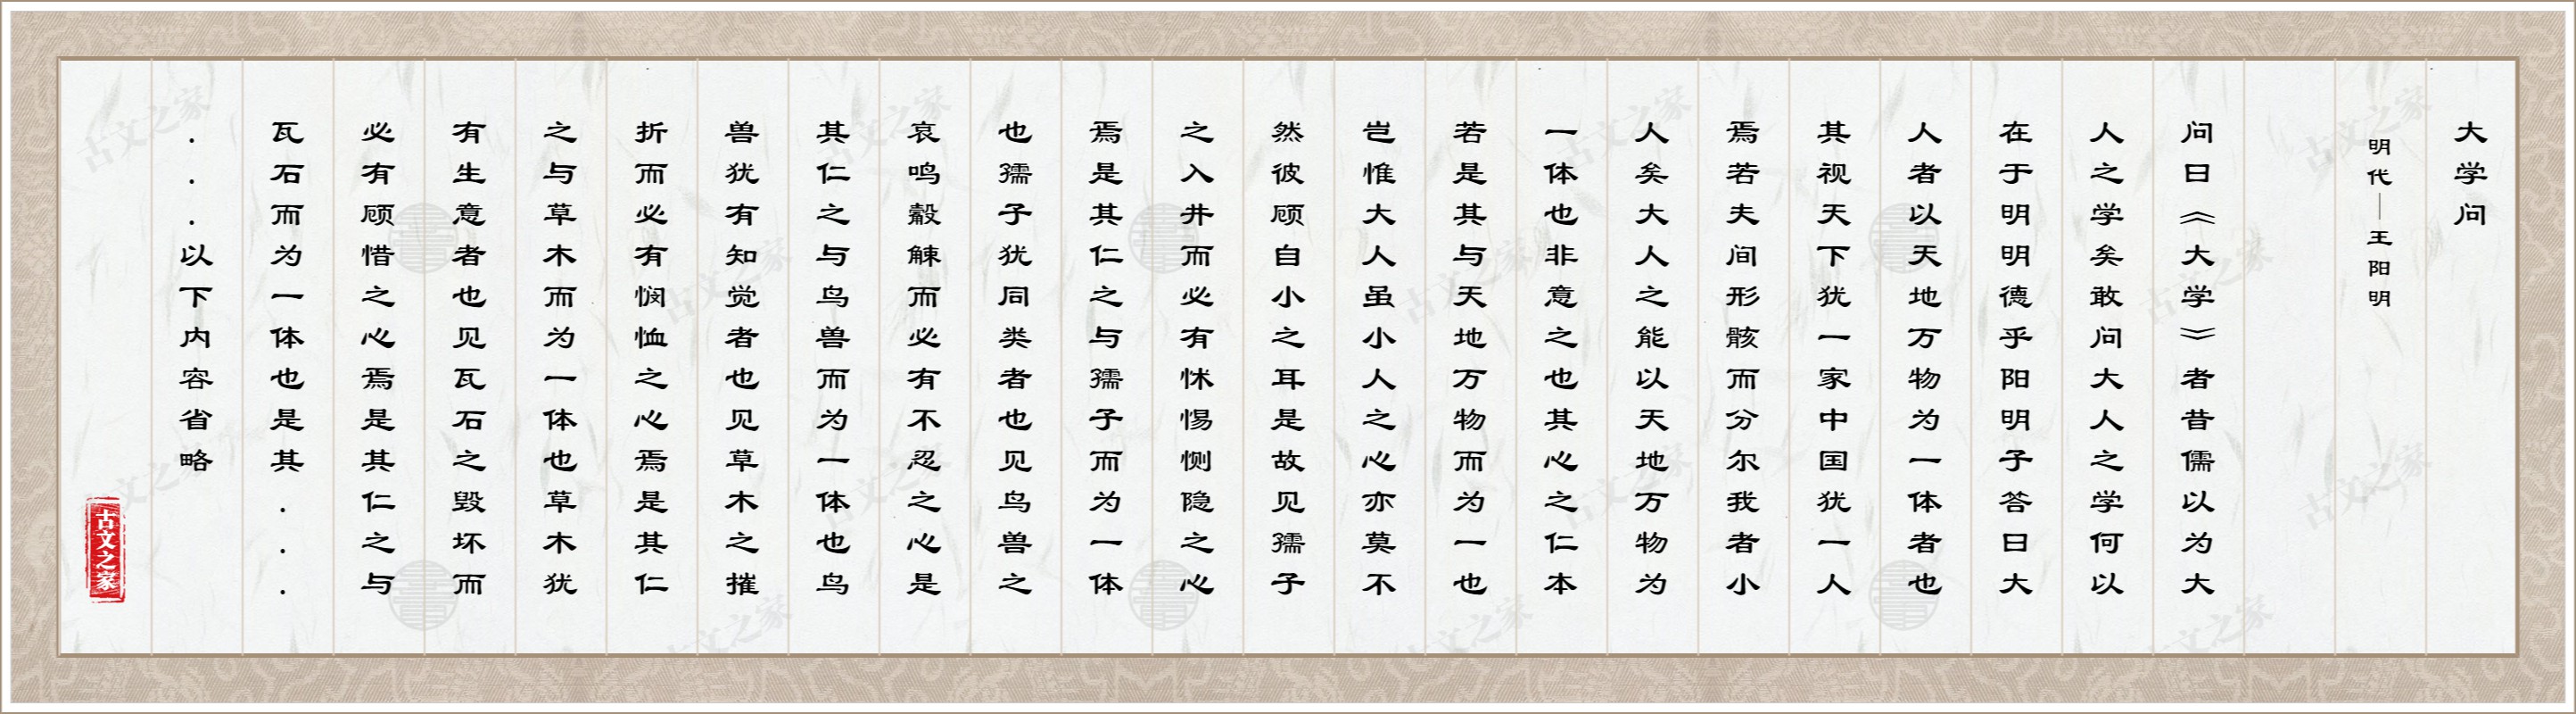 大学问
明代—王阳明
问曰《大学》者昔儒以为大
人之学矣敢问大人之学何以
在于明明德乎阳明子答曰大
人者以天地万物为一体者也
其视天下犹一家中国犹一人
焉若夫间形骸而分尔我者小
人矣大人之能以天地万物为
一体也非意之也其心之仁本
若是其与天地万物而为一也
岂惟大人虽小人之心亦莫不
然彼顾自小之耳是故见孺子
之入井而必有怵惕恻隐之心
焉是其仁之与孺子而为一体
也孺子犹同类者也见鸟兽之
哀鸣觳觫而必有不忍之心是
其仁之与鸟兽而为一体也鸟
兽犹有知觉者也见草木之摧
折而必有悯恤之心焉是其仁
之与草木而为一体也草木犹
有生意者也见瓦石之毁坏而
必有顾惜之心焉是其仁之与
瓦石而为一体也是其...
...以下内容省略
古文之家